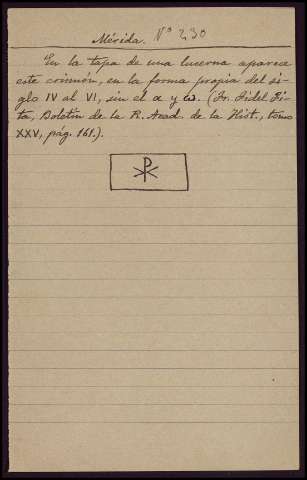 Mérida. Nº 230
En la tapa de una lucerna aparece
este crismón, en la forma propia del si-
glo IV al VI, sin el α y ω. (Fr. Fidel Fi-
ta, Boletín de la R. Acad. de la Hist., tomo
XXV, pág. 161.).